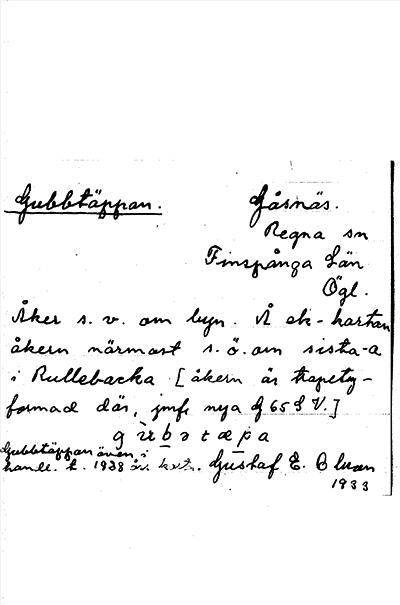 Gubbtäppan. Gåsnäs.
Regna sn
Finspånga Län
Ögl.
Åker s. v. om byn. Å ek-kartan
åkern närmast s. ö. om sista-a
i Rullebacka [åkern är trapets-
formad där, jmfr nya G 65 S V.]
gubbtäppan även i
handl. t. 1938 års kart. Gustaf E.
1933